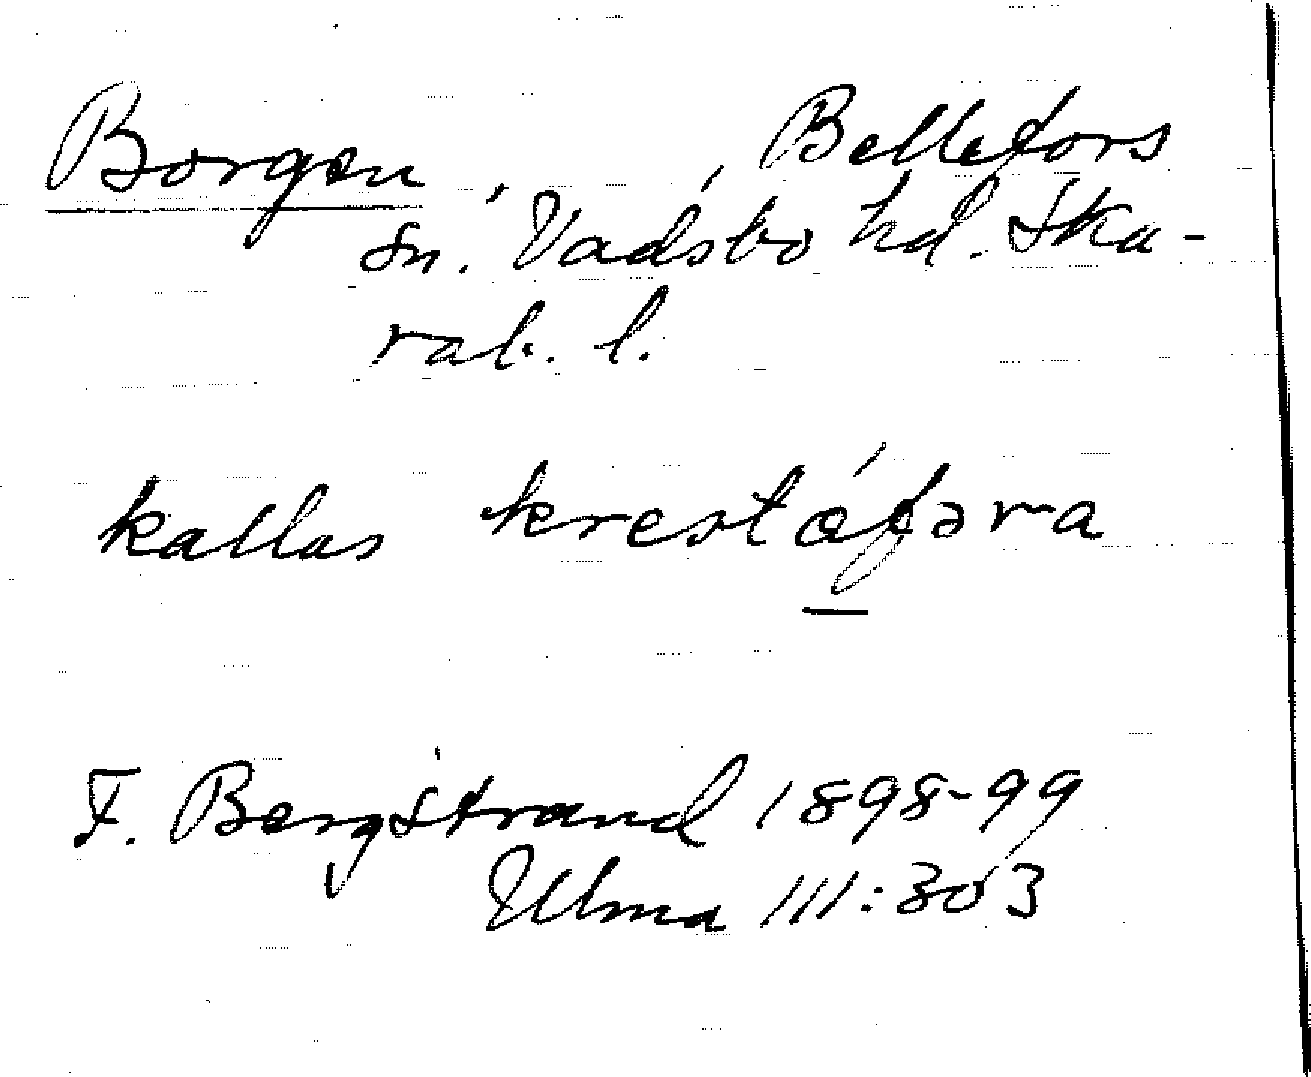 Borgen, , Bellefors
sn. Vadsbo hd. Ska-
rab. l.
kallas krestǿfəra
F. Bergstrand 1898-99
Ulma 111:303